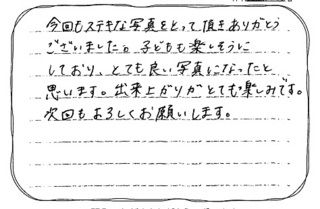 今回もステキな写真をとって頂きありがとう
ございました。子どもも楽しそうに
しており、とても良い写真になったと
思います。出来上がりがとても楽しみです。
次回もよろしくお願いします。